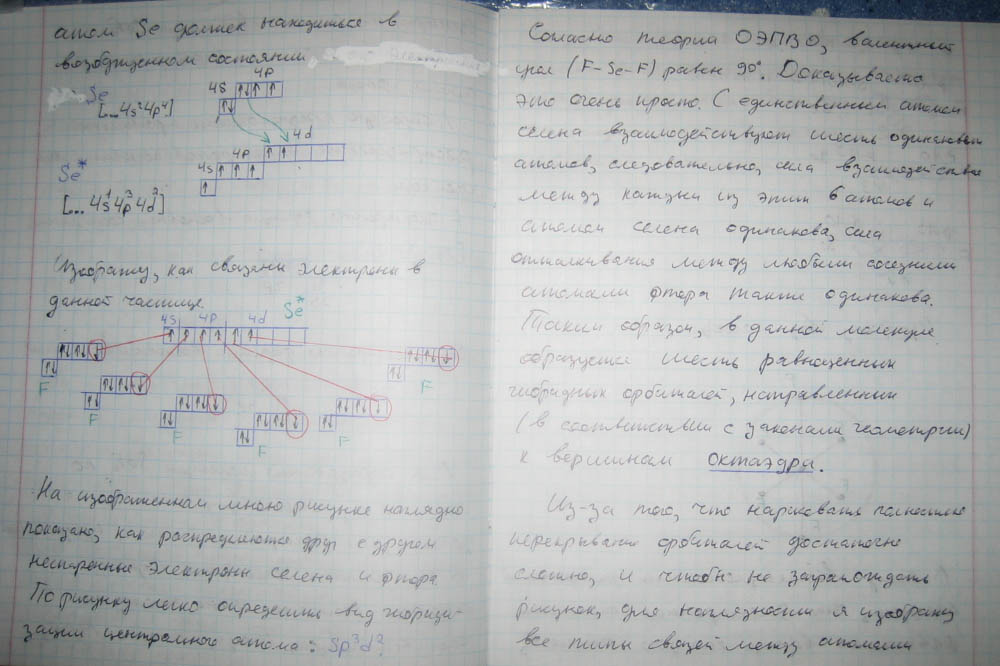 атом Se должен находиться в
возбужденном состоянии.
4p
4s
Se
[...4s²4p⁴]
4d
4p
4s
Se*
[...4s¹4p³4d²]
Изображу, как связаны электроны в
данной частице
Se*
4s 4p 4d
F
F
F
F
F
F
На изображенном мною рисунке наглядно
показано, как распределяются друг с другом
неспаренные электроны селена и фтора
По рисунку легко определить вид гибриди-
зации центрального атома: sp³d².
Согласно теории ОЭПВО, валентный
угол (F-Se-F) равен 90°. Доказывается
это очень просто. С единственным атомом
селена взаимодействуют шесть одинаковых
атомов, следовательно, сила взаимодействия
между каждым из этих 6 атомов и
атомом селена одинакова, сила
отталкивания между любыми соседними
атомами фтора также одинакова.
Таким образом, в данной молекуле
образуется шесть равноценных
гибридных орбиталей, направленных
(в соответствии с законами геометрии)
к вершинам октаэдра.
Из-за того, что нарисовать полностью
перекрывание орбиталей достаточно
сложно, и чтобы не загромождать
рисунок, для наглядности я изображу
все типы связей между атомами